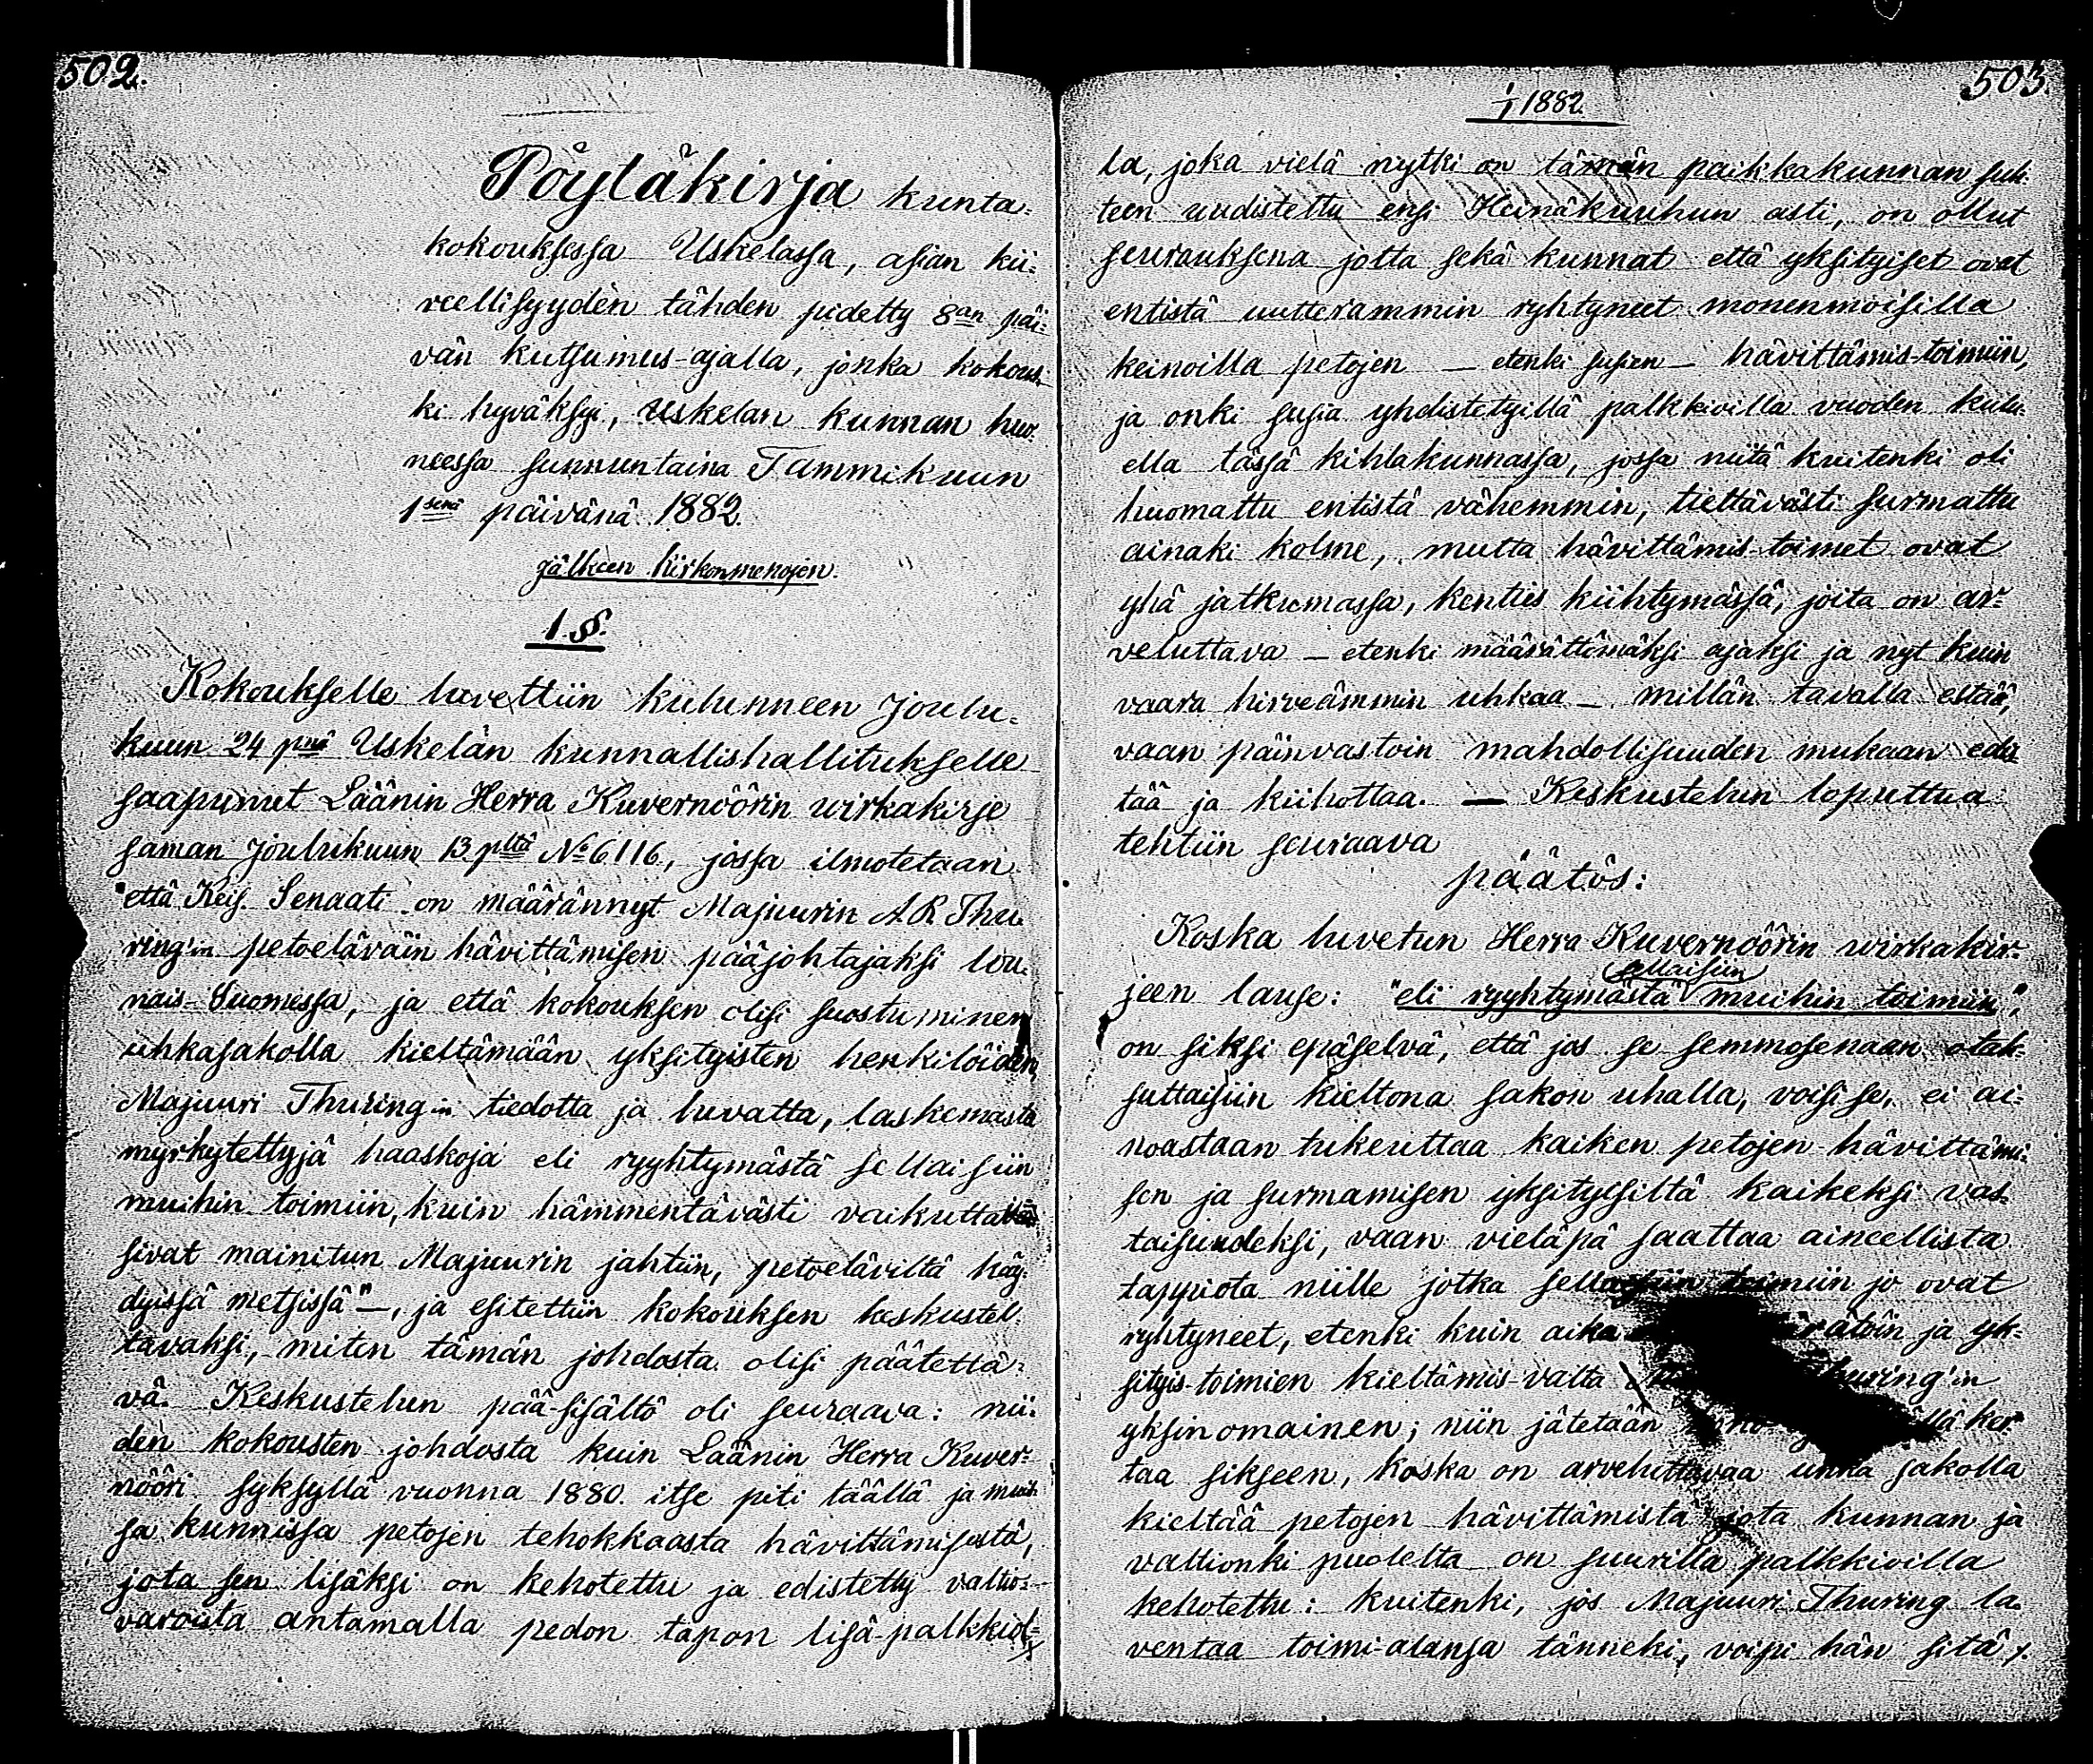 502.
Pöytäkirja kunta-
kokouksessa Uskelassa, asian kii-
reellisyyden tähden pidetty 8an päi-
vän kutsumus-ajalla, jonka kokous-
ki hyväksyi, Uskelan kunnan huo-
neessa sunnuntaina Tammikuun
1senä päivänä 1882.
jälkeen kirkonmenojen.
1 §.
Kokoukselle luvettiin kulunneen Joulu-
kuun 24 pnä Uskelan kunnallishallitukselle
saapunut Läänin Herra Kuvernöörin wirkakirje
saman Joulukuun 13 pltä No 6116, jossa ilmotetaan
"että Keis. Senaati on määrännyt Majuurin A R Thu-
ring'in petoeläväin hävittämisen pääjohtajaksi lou-
nais-Suomessa, ja että kokouksen olisi suostuminen
uhkasakolla kieltämään yksityisten henkilöiden,
Majuuri Thuring'in tiedotta ja luvatta, laskemasta
myrkytettyjä haaskoja eli ryyhtymästä sellaisiin
muihin toimiin, kuin hämmentävästi vaikuttai-
sivat mainitun Majuurin jahtiin, petoeläviltä käy-
dyissä metsissä"—, ja esitettiin kokouksen keskustel-
tavaksi, miten tämän johdosta olisi päätettä-
vä. Keskustelun pää-sisältö oli seuraava: nii-
den kokousten johdosta kuin Läänin Herra Kuver-
nööri syksyllä vuonna 1880. itse piti täällä ja muis-
sa kunnissa petojen tehokkaasta hävittämisestä,
jota sen lisäksi on kehotettu ja edistetty valtio-
varoista antamalla pedon tapon lisä-palkkiol-
503.
1/1 1882.
la, joka vielä nytki on tämän paikkakunnan suh-
teen uudistettu ensi Heinäkuuhun asti, on ollut
seurauksena jotta sekä kunnat että yksityiset ovat
entistä uutterammin ryhtyneet monenmoisilla
keinoilla petojen — etenki susien — hävittämis-toimiin,
ja onki susia yhdistetyillä palkkioilla vuoden kulu-
ella tässä kihlakunnassa, jossa niitä kuitenki oli
huomattu entistä vähemmin, tiettävästi surmattu
ainaki kolme, mutta hävittämis-toimet ovat
yhä jatkumassa, kenties kiihtymässä, joita on ar-
veluttava — etenki määrättömäksi ajaksi ja nyt kuin
vaara hirveämmin uhkaa — millän tavalla estää,
vaan päinvastoin mahdollisuuden mukaan edis
tää ja kiihottaa. — Keskustelun loputtua
tehtiin seuraava
päätös:
Koska luvetun Herra Kuvernöörin wirkakir-
sellaisiin
jeen lause: "eli ryyhtymästä muihin toimiin",
on siksi epäselvä, että jos se semmosenaan otak-
suttaisiin kieltona sakon uhalla, voisi se, ei ai-
noastaan tukeuttaa kaiken petojen hävittämi-
sen ja surmamisen yksityisiltä kaikeksi vas-
taisuudeksi, vaan vieläpä saattaa aineellista
tappiota niille jotka sellaisiin toimiin jo ovat
ryhtyneet, etenki kuin aika ja yk-
sityis-toimien kieltämis-valta
yksinomainen; niin jätetään ker-
taa sikseen, koska on arveluttavaa uhka sakolla
kieltää petojen hävittämistä jota kunnan ja
valtionki puolelta on suurilla palkkioilla
kehotettu: kuitenki, jos Majuuri Thuring la-
ventaa toimi-alansa tänneki, voipi hän sitä